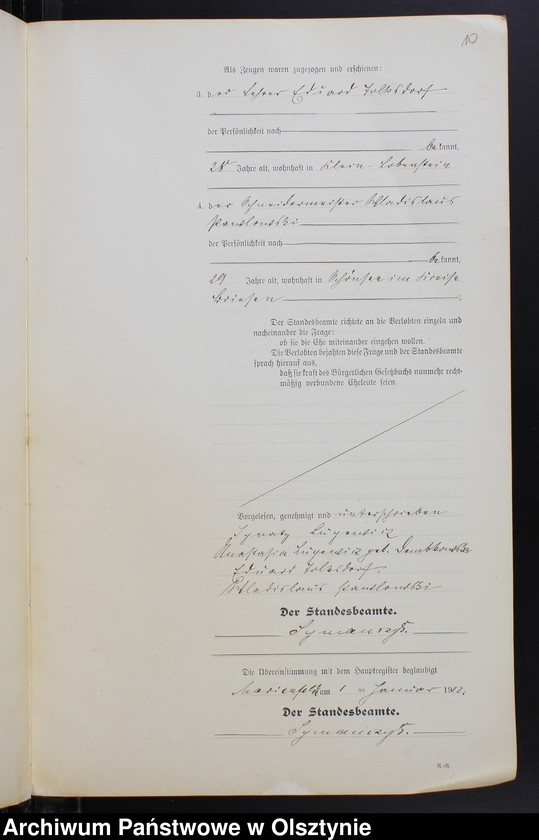 10
Als Zeugen waren zugezogen und erschienen:
3. der Lehrer Eduard Tolksdorf
der Persönlichkeit nach
be kannt,
28 Jahre alt, wohnhaft in Klein-Lobenstein
4. der Schneidermeister Wladislaus
Pawlowski
der Persönlichkeit nach
be kannt,
29 Jahre alt, wohnhaft in Schönsee im Kreise
Briesen
Der Standesbeamte richtete an die Verlobten einzeln und
nacheinander die Frage:
ob sie die Ehe miteinander eingehen wollen.
Die Verlobten bejahten diese Frage und der Standesbeamte
sprach hierauf aus,
daß sie kraft des Bürgerlichen Gesetzbuchs nunmehr recht-
mäßig verbundene Eheleute seien.
Vorgelesen, genehmigt und unterschrieben
Ignatz
Anastasia geb.
Eduard Tolksdorf.
Wladislaus Pawlowski
Der Standesbeamte.
Die Übereinstimmung mit dem Hauptregister beglaubigt
am 1 Januar 1912.
Der Standesbeamte.
Archiwum Państwowe w Olsztynie